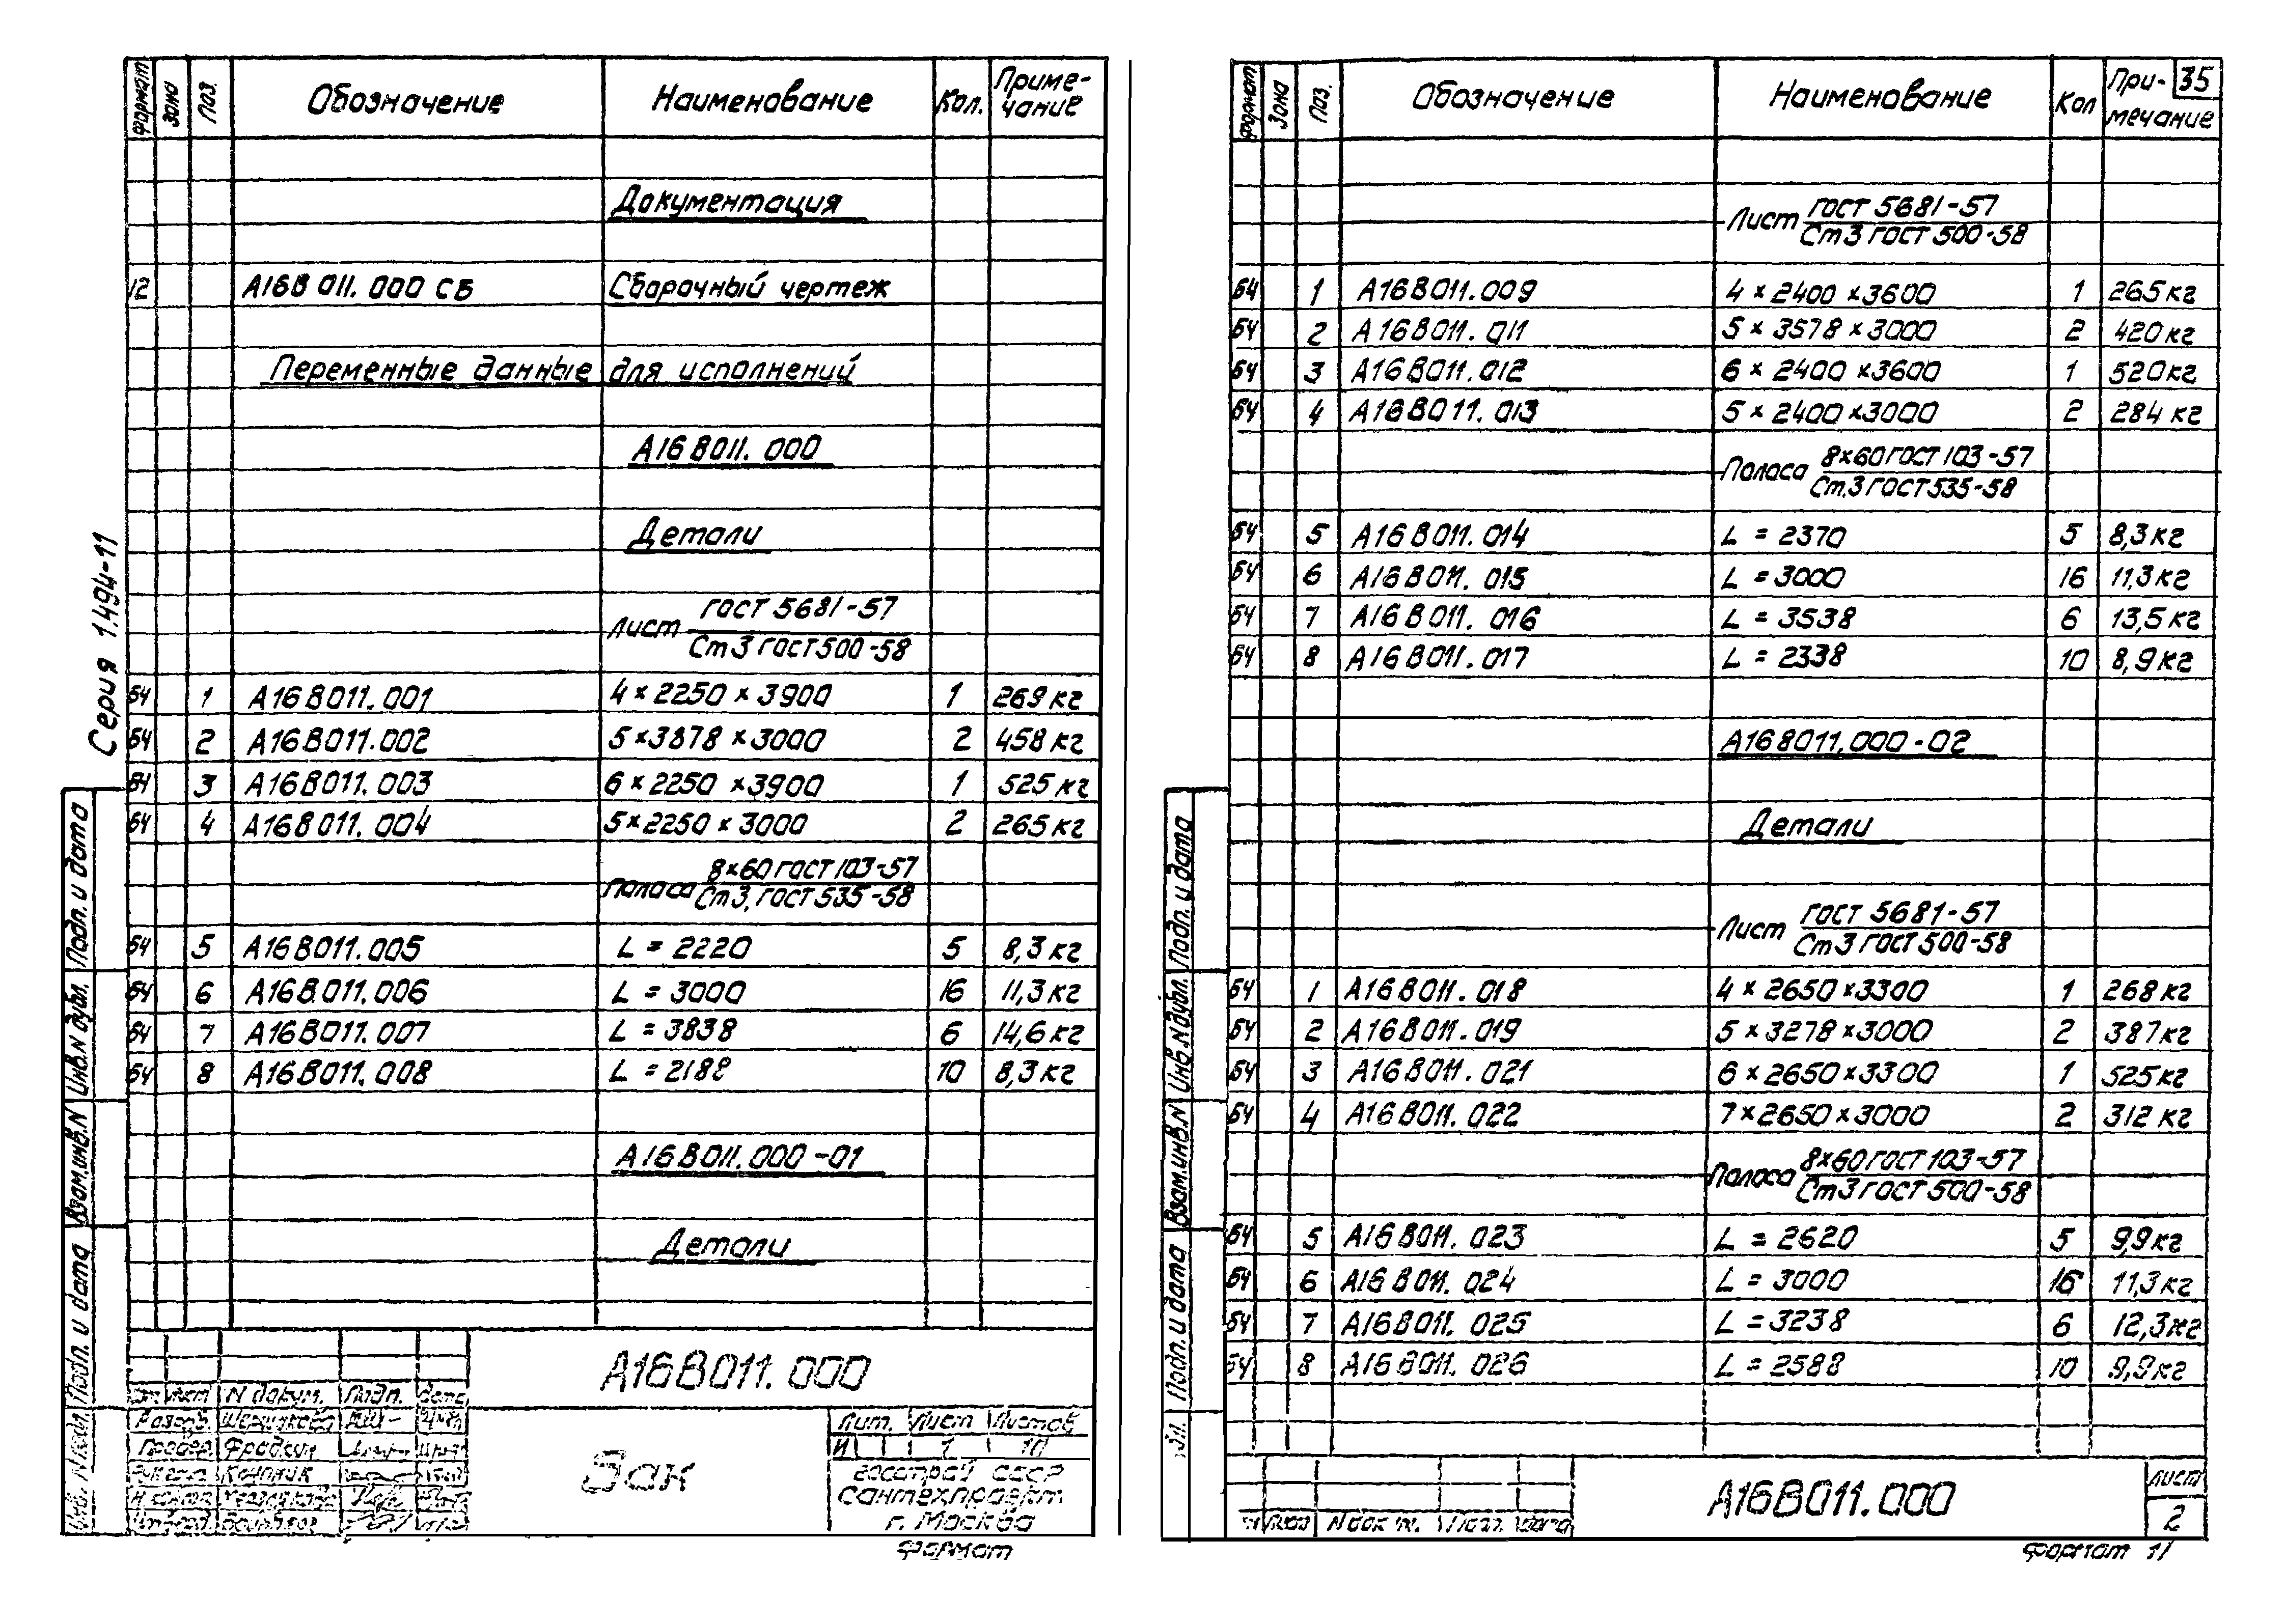 Формат Зона Поз. Обозначение Наименование Кол. Приме-
чание
Документация
12 А16В 011.000 СБ Сборочный чертеж
Переменные данные для исполнений
А16В011.000
Детали
Лист ГОСТ 5681-57
Ст3 ГОСТ 500-58
БЧ 1 А16В011.001 4×2250×3900 1 269кг
БЧ 2 А16В011.002 5×3878×3000 2 458кг
БЧ 3 А16В011.003 6×2250×3900 1 525кг
БЧ 4 А16В011.004 5×2250×3000 2 265кг
Полоса 8×60 ГОСТ 103-57
Ст3, ГОСТ 535-58
БЧ 5 А16В011.005 L = 2220 5 8,3кг
БЧ 6 А16В.011.006 L = 3000 16 11,3кг
БЧ 7 А16В011.007 L = 3838 6 14,6кг
БЧ 8 А16В011.008 L = 2188 10 8,3кг
А16В011.000-01
Детали
Серия 1.494-11
Подп. и дата
Инв.N дубл.
Взам.инв.N
Подп. и дата
Инв. N подл.
А16В011.000
Лист N докум. Подп. Дата
Разраб.
Провер. Фрадкин
Бак
Лит. Лист Листов
И 1 10
Госстрой СССР
Сантехпроект
г. Москва
Формат
Формат Зона Поз. Обозначение Наименование Кол При-
мечание
35
Лист ГОСТ 5681-57
Ст3 ГОСТ 500-58
БЧ 1 А16В011.009 4×2400×3600 1 265кг
БЧ 2 А16В011.011 5×3578×3000 2 420кг
БЧ 3 А16В011.012 6×2400×3600 1 520кг
БЧ 4 А16В011.013 5×2400×3000 2 284кг
Полоса 8×60 ГОСТ 103-57
Ст.3 ГОСТ 535-58
БЧ 5 А16В011.014 L = 2370 5 8,3кг
БЧ 6 А16В011.015 L = 3000 16 11,3кг
БЧ 7 А16В011.016 L = 3538 6 13,5кг
БЧ 8 А16В011.017 L = 2338 10 8,9кг
А16В011.000-02
Детали
Лист ГОСТ 5681-57
Ст3 ГОСТ 500-58
БЧ 1 А16В011.018 4×2650×3300 1 268кг
БЧ 2 А16В011.019 5×3278×3000 2 387кг
БЧ 3 А16В011.021 6×2650×3300 1 525кг
БЧ 4 А16В011.022 7×2650×3000 2 312кг
Полоса 8×60 ГОСТ 103-57
Ст3 ГОСТ 500-58
БЧ 5 А16В011.023 L = 2620 5 9,9кг
БЧ 6 А16В011.024 L = 3000 16 11,3кг
БЧ 7 А16В011.025 L = 3238 6 12,3кг
БЧ 8 А16В011.026 L = 2588 10 9,9кг
Подп. и дата
Инв.N дубл.
Взам.инв.N
Подп. и дата
А16В011.000
Лист
2
Лист N док Дата
Формат 11